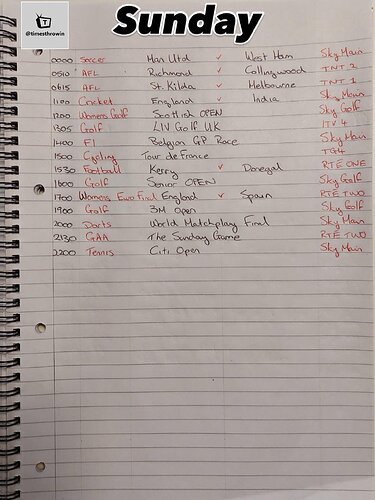 Sunday
@timesthrowin
0000 Soccer Man Utd v West Ham Sky Main
0510 AFL Richmond v Collingwood TNT 2
0615 AFL St. Kilda v Melbourne TNT 1
1100 Cricket England v India Sky Main
1200 Womens Golf Scottish OPEN Sky Golf
1305 Golf LIV Golf UK ITV 4
1400 F1 Belgian GP Race Sky Main
1500 Cycling Tour de France TG4
1530 Football Kerry v Donegal RTE ONE
1600 Golf Senior OPEN Sky Golf
1700 Womens Euro Final England v Spain RTE TWO
1900 Golf 3M Open Sky Golf
2000 Darts World Matchplay Final Sky Main
2130 GAA The Sunday Game RTE TWO
2200 Tennis Citi Open Sky Main